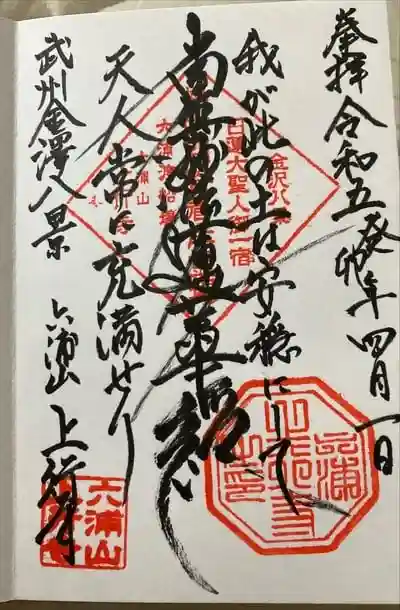 奉拝 令和五癸卯年四月一日
我が此の土は安穏にして
南無妙法蓮華経
天人常に充満せり
武州金澤八景 六浦山 上行寺
金沢八景
日蓮大聖人御一宿
六浦山
六浦山
上行寺